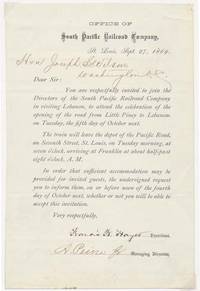 OFFICE OF
South Pacific Railroad Company,
St. Louis, Sept. 27, 1869.
Hon. Joseph S. Wilson
Washington D.C.
Dear Sir:
You are respectfully invited to join the
Directors of the South Pacific Railroad Company
in visiting Lebanon, to attend the celebration of the
opening of the road from Little Piney to Lebanon
on Tuesday, the fifth day of October next.
The train will leave the depot of the Pacific Road,
on Seventh Street, St. Louis, on Tuesday morning, at
seven o'clock, arriving at Franklin at about half-past
eight o'clock, A. M.
In order that sufficient accommodation may be
provided for invited guests, the undersigned request
you to inform them, on or before noon of the fourth
day of October next, whether or not you will be able to
accept this invitation.
Very respectfully,
Francis B. Hayes President.
A. Peirce Jr Managing Director.